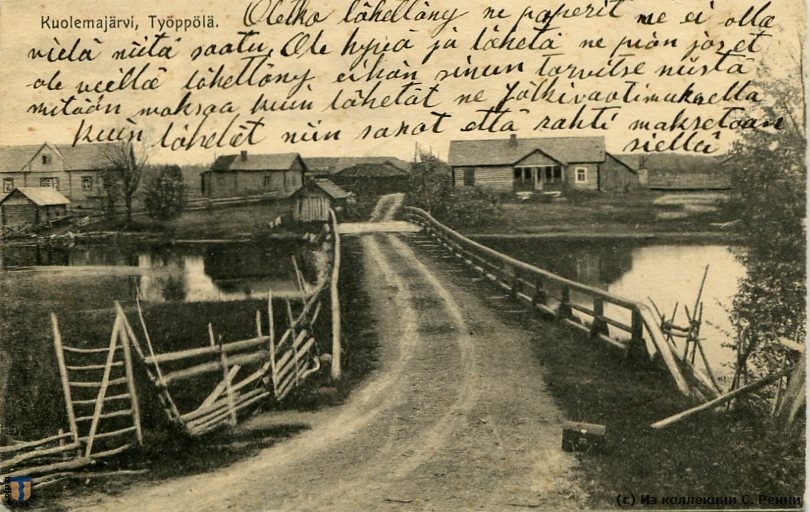 Kuolemajärvi, Työppölä.
Oletko lähettäny ne paperit me ei olla
vielä niitä saatu. Ole hyvä ja läheta ne pian jos et
ole vieillä lähettäny eihän sinun tarvitse niistä
mitään maksaa kuin lähetät ne Jälkivaatimuksella
kuin lähetät niin sanot että rahti maksetaan
siellä
(c) Из коллекции С. Ренни